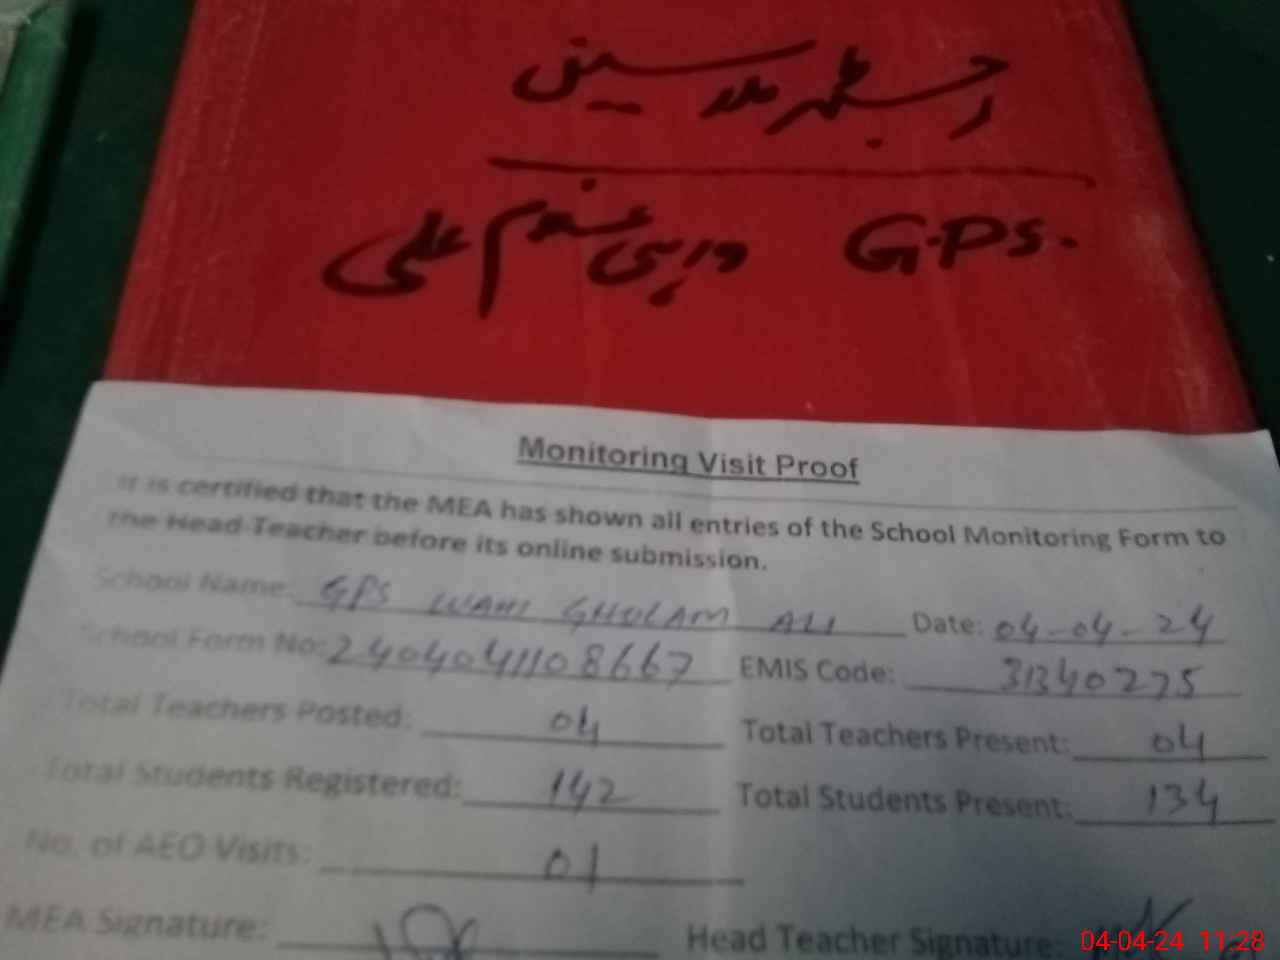 رجسٹر مدرسین
G.P.S. وہی غلام علی
Monitoring Visit Proof
It is certified that the MEA has shown all entries of the School Monitoring Form to
the Head Teacher before its online submission.
School Name: GPS WAHI GHOLAM ALI Date: 04-04-24
School Form No: 2404041108667 EMIS Code: 31340275
Total Teachers Posted: 04 Total Teachers Present: 04
Total Students Registered: 142 Total Students Present: 134
No. of AEO Visits: 01
MEA Signature: Head Teacher Signature:
04-04-24 11:28